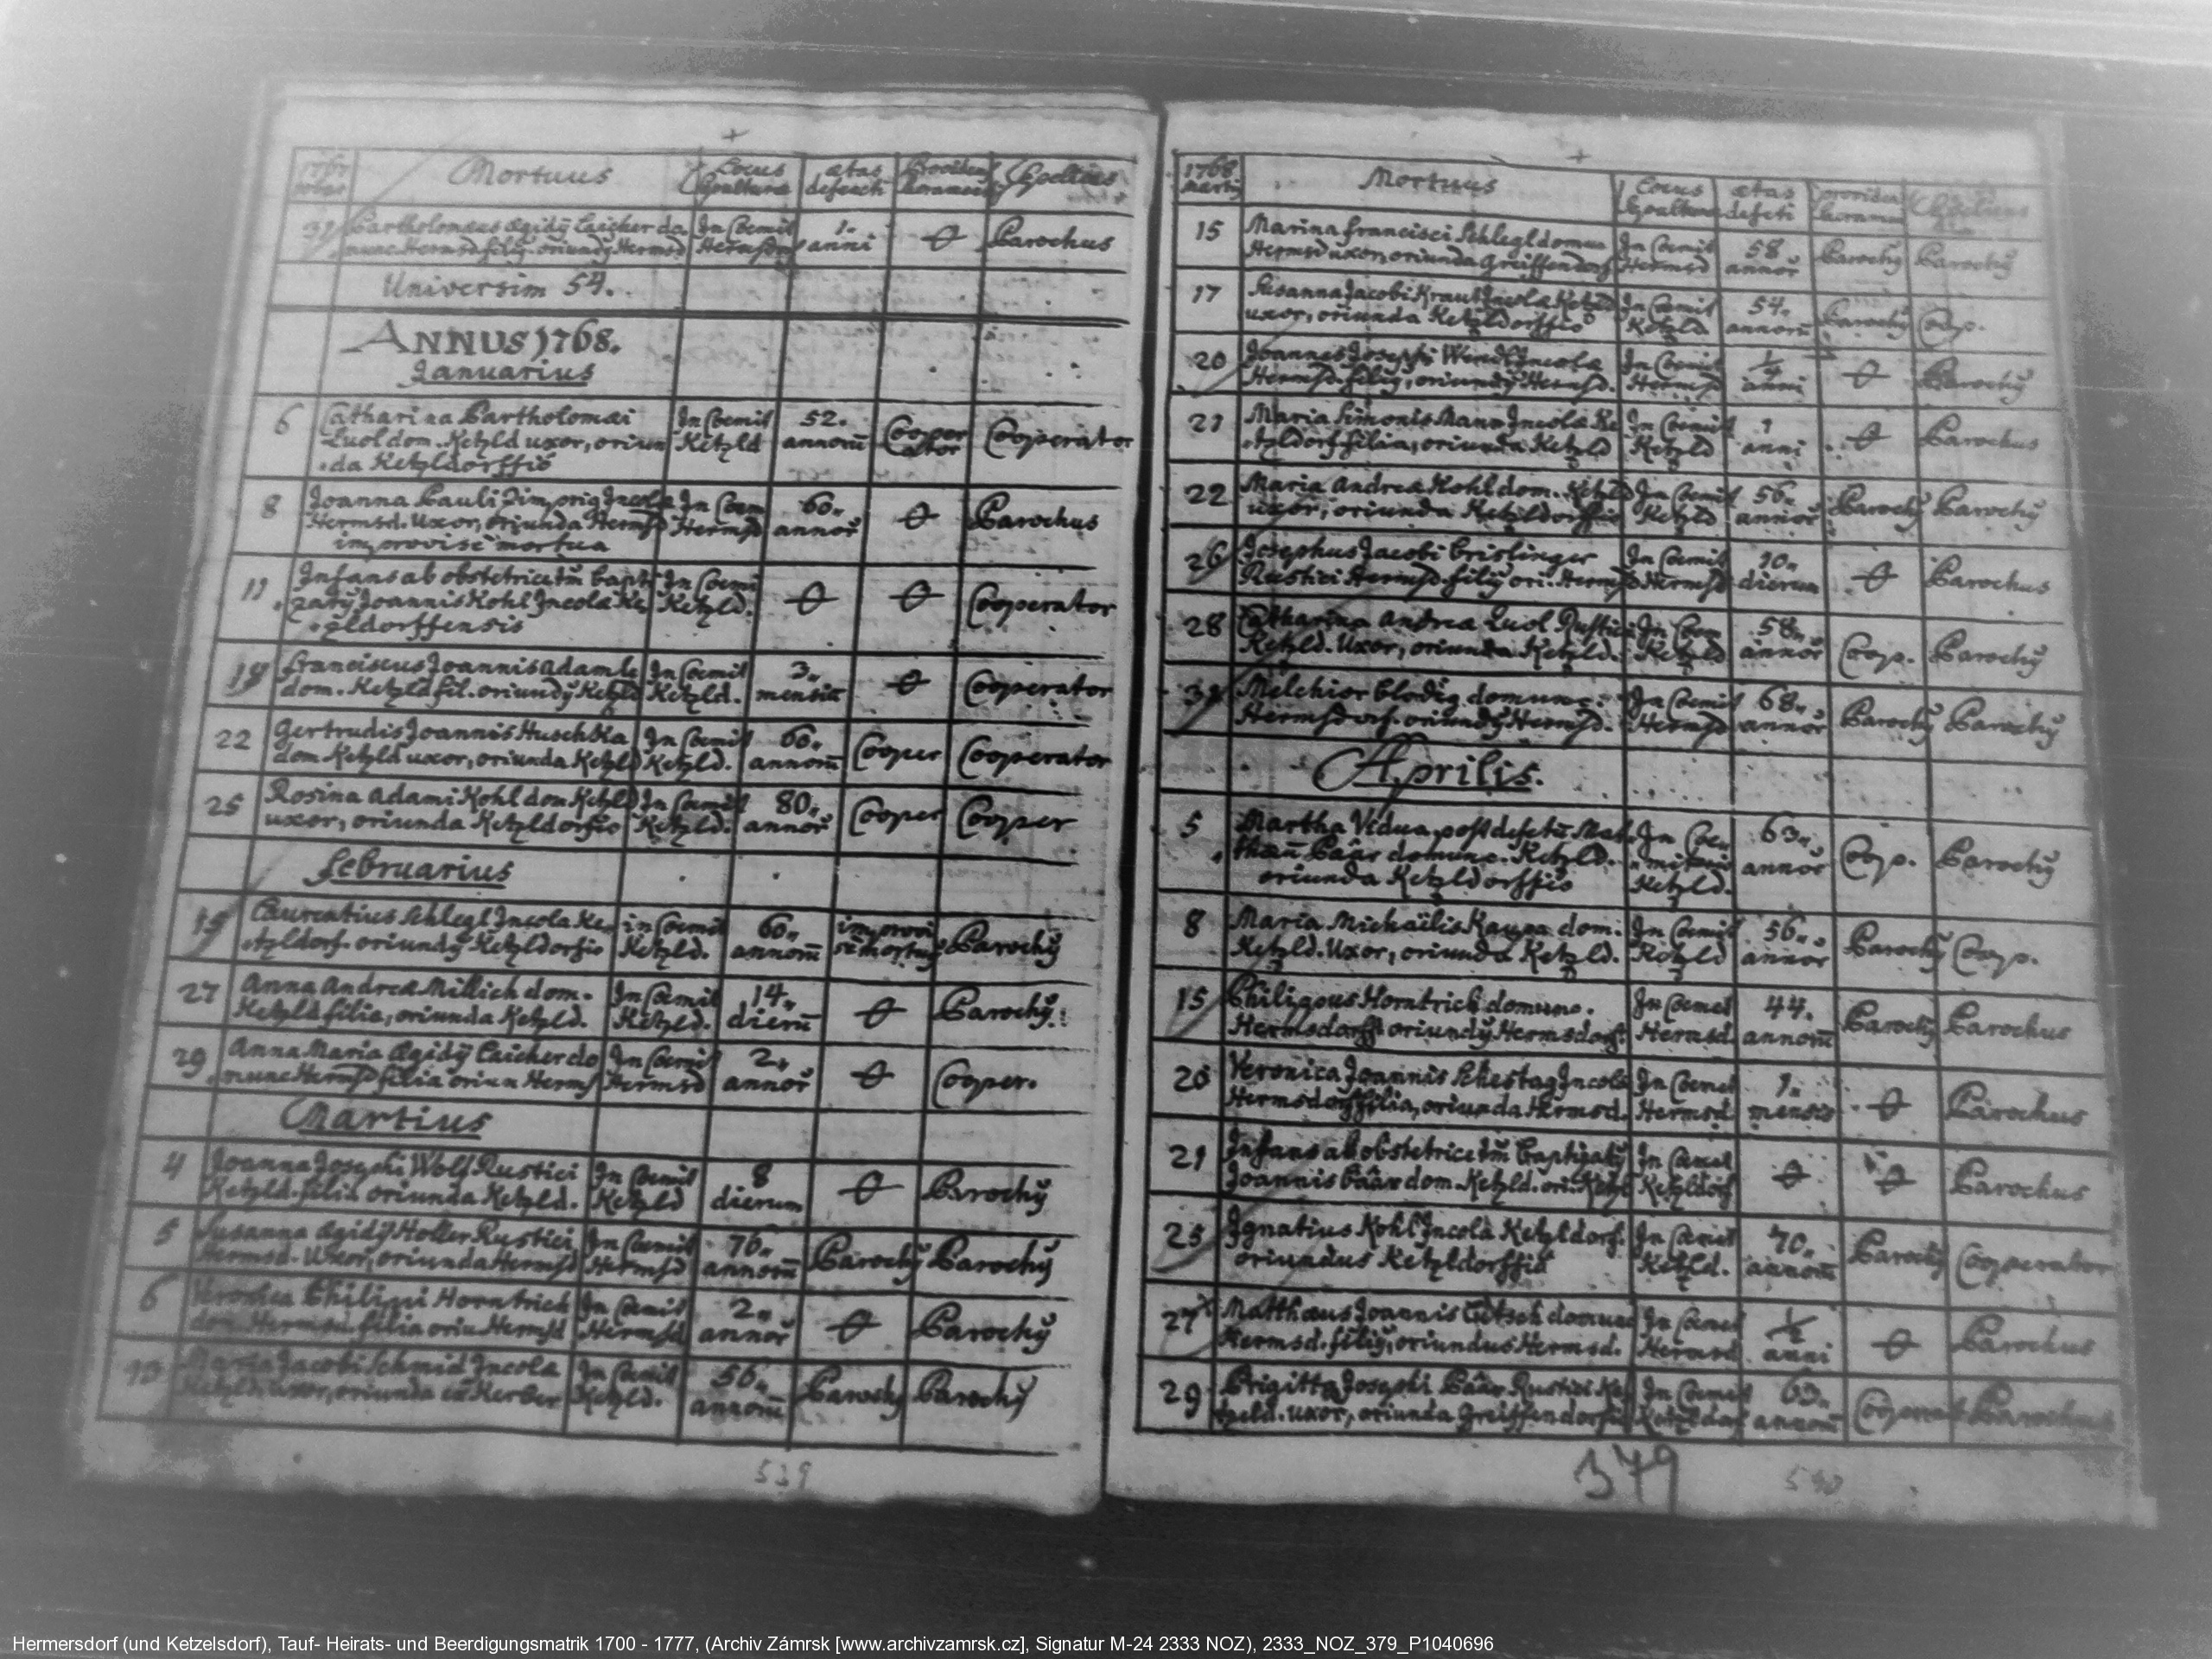 Mortuus Locus Sepultura ætas defuncti
31 Bartholomæus Ægidÿ Caicher do In Coemit 1. anni Parochus
munc Hermsd filÿ oriundÿ Hermsd Hermsd
Universim 54.
ANNUS 1768.
Januarius
6 Catharina Bartholomæi In Coemit 52. Cooper Cooperator
Luol dom. Ketzld uxor, oriun Ketzld annorū ator
da Ketzldorffio
8 Joanna Pauli Incola In Coem 60. Parochus
Hermsd. Uxor, oriunda Hermsd Hermsd annor
improvise mortua
11 Infans ab obstetrice tm bapti In Coemi Cooperator
zatÿ Joannis Kohl Incolæ Ke Ketzld.
tzldorffensis
19 Franciscus Joannis Adamle In Coemit 3. Cooperator
dom. Ketzld fil. oriundÿ Ketzld Ketzld. mensiū
22 Gertrudis Joannis Huschka In Coemit 60. Cooper Cooperator
dom Ketzld uxor, oriunda Ketzld Ketzld. annorū
25 Rosina Adami Kohl dom Ketzld In Coemit 80. Cooper Cooper
uxor, oriunda Ketzldorfio Ketzld. annor
Februarius
15 Laurentius Schlegl Incola Ke in Coemit 60. improvi Parochÿ
tzldorf. oriundÿ Ketzldorfio Ketzld. annorū se mortuÿ
27 Anna Andreæ Millich dom. In Coemit 14. Parochÿ
Ketzld filia, oriunda Ketzld. Ketzld. dierū
29 Anna Maria Ægidÿ Caicher do In Coemit 2. Cooper.
munc Hermsd filia oriun Herms Hermsd annor
Martius
4 Joanna Josephi Wolf Rustici In Coemit 8 Parochÿ
Ketzld. filia oriunda Ketzld. Ketzld dierum
5 Susanna Ægidÿ Holler Rustici In Coemit 76. Parochÿ Parochÿ
Hermsd. Uxor, oriunda Hermsd Hermsd annorū
6 Veronica Philippi Horntrich In Coemit 2. Parochÿ
dom. Hermsd. filia oriu Hermsd Hermsd annor
10 Maria Jacobi Schmid Incola In Coemit 56. Parochÿ Parochÿ
Ketzld. uxor, oriunda Ketzld. annorū
539
1768 Martÿ Mortuus Locus Sepultura ætas defcti
15 Marina Francisci Schlegl domun In Coemit 58 Parochÿ Parochÿ
Hermsd uxor, oriunda Greiffendorf Hermsd annor
17 Susanna Jacobi Kraut Incola Ketzld In Coemit 54. Parochÿ Coop.
uxor, oriunda Ketzldorffio Ketzld annorū
20 Joannes Josephi Wendl Incola In Coemit 1/4 Parochÿ
Hermsd. filiÿ, oriundÿ Hermsd. Hermsd anni
21 Maria Simonis Mann Incolæ Ke In Coemit 1 Parochus
tzldorf filia, oriunda Ketzld Ketzld anni
22 Maria Andreæ Kohl dom. Ketzld In Coemit 56. Parochÿ Parochÿ
uxor, oriunda Ketzldorffio Ketzld annor
26 Josephus Jacobi Brislinger In Coemit 10. Parochus
Rustici Hermsd. filiÿ ori. Hermsd Hermsd dierum
28 Catharina Andreæ Luol Rustici In Coem 58. Coop. Parochÿ
Ketzld. Uxor, oriunda Ketzld. Ketzld annor
31 Melchior Blodig domunc. In Coemit 68. Parochÿ Parochÿ
Hermsdorf. oriundÿ Hermsd. Hermsd annor
Aprilis.
5 Martha Vidua post defctū Mat In Coe 63. Coop. Parochÿ
thæū Bäär domunc. Ketzld. miterio annor
oriunda Ketzldorffio Ketzld.
8 Maria Michaëlis Kaupa dom. In Coemit 56. Parochÿ Coop.
Ketzld. Uxor, oriunda Ketzld. Ketzld annor
15 Philippus Horntrich domunc. In Coemet 44. Parochÿ Parochus
Hermsdorff oriundÿ Hermsdorf. Hermsd. annorū
20 Veronica Joannis Schestag Incola In Coemet 1. Parochus
Hermsdorf filia, oriunda Hermsd. Hermsd. mensis
21 Infans ab obstetrice tm baptizatÿ In Coemet Parochus
Joannis Bäär dom. Ketzld. ori. Ketzl Ketzldorf
25 Ignatius Kohl Incola Ketzldorf. In Coemit 70. Parochÿ Cooperator
oriundus Ketzldorffio Ketzld. annorū
27 Matthæus Joannis domunc In Coemet 1/2 Parochus
Hermsd. filiÿ, oriundus Hermsd. Hermsd anni
29 Brigitta Josephi Bäär Rustici Ke In Coemet 63. Parochus
tzeld. uxor, oriunda Greiffendorfio Ketzldorf annorū
379 540
Hermersdorf (und Ketzelsdorf), Tauf- Heirats- und Beerdigungsmatrik 1700 - 1777, (Archiv Zámrsk [www.archivzamrsk.cz], Signatur M-24 2333 NOZ), 2333_NOZ_379_P1040696